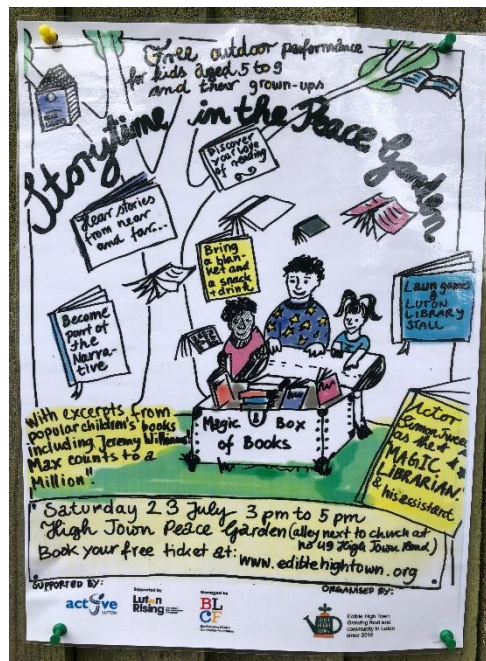 Free outdoor performance
for kids aged 5 to 9
and their grown-ups
Storytime in the Peace Garden
Discover
your love
of reading
Hear stories
from near
and far...
Bring
a blan-
ket and
a snack
+ drink
Become
part of
the
Narra-
tive
Lawn games
&
LUTON
LIBRARY
STALL
With excerpts from
popular children's books
including Jeremy Williams'
Max counts to a
Million".
Magic Box
of Books
Actor
as the
MAGIC
LIBRARIAN
& his assistant
Saturday 23 July 3 pm to 5 pm
High Town Peace Garden (alley next to church at
no 49 High Town Road)
Book your free ticket at: www.ediblehightown.org
SUPPORTED BY:
active
LUTON
Supported by
Luton
Rising
Managed by
BL
CF
ORGANISED BY:
Edible High Town
Growing food and
community in Luton
since 2016